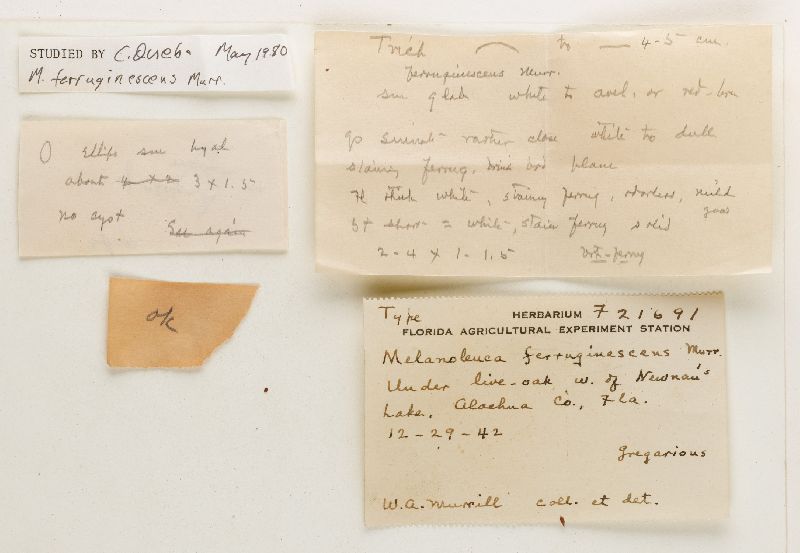 STUDIED BY C. Ovrebo May 1980
M. ferruginescens Murr.
Ellips sm hyal
about 4 x 2 3 x 1.5
no cyst
See again
ok
Trich to 4-5 cm.
ferruginescens Murr.
sm glab white to avel. or red-brn
go sinuate rather close white to dull
staining ferrug. plane
thick white, staining ferrug, odorless, mild
good
st short = white, stain ferrug solid
2-4 x 1-1.5
Type HERBARIUM F 21691
FLORIDA AGRICULTURAL EXPERIMENT STATION
Melanoleuca ferruginescens Murr.
Under live-oak w. of Newnan's
Lake, Alachua Co., Fla.
12-29-42
Gregarious
W.A. Murrill coll. et det.